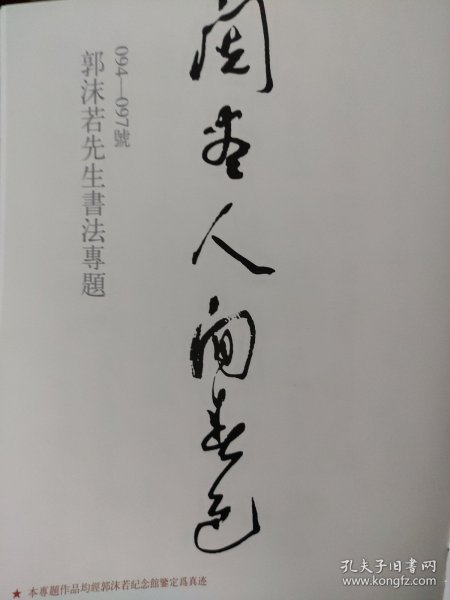 閱盡人間春色
094—097號
郭沫若先生書法專題
★ 本專題作品均經郭沫若紀念館鑒定爲真迹
孔夫子旧书网
www.kongfz.com